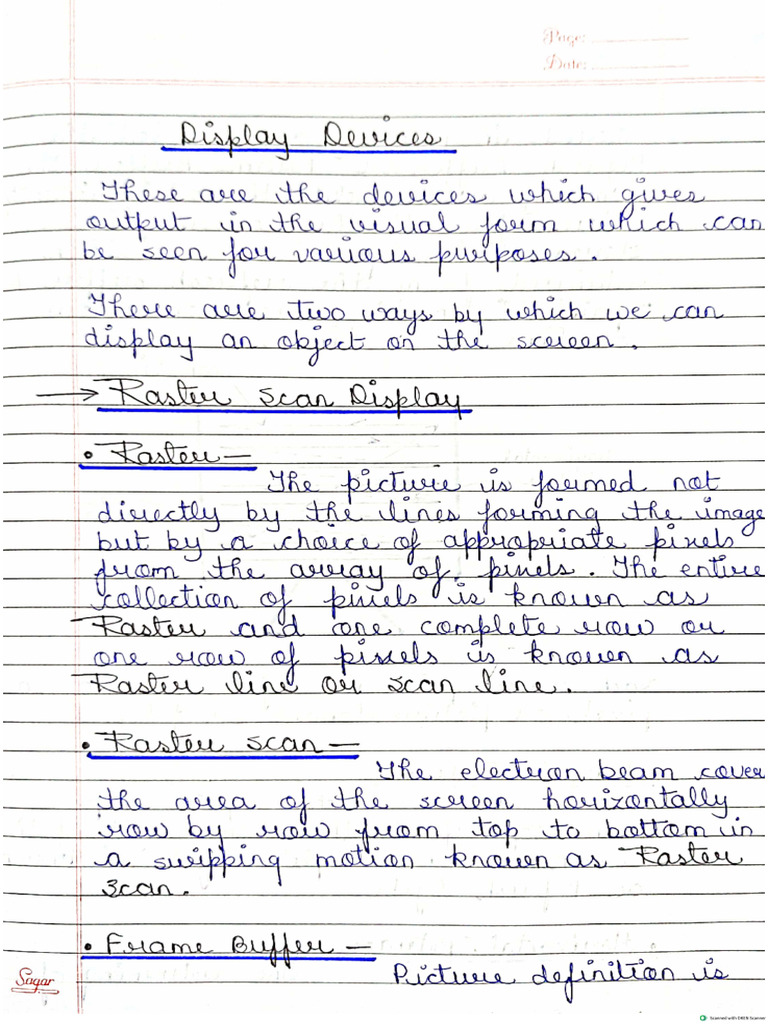 Page:
Date:
Display Devices
These are the devices which gives
output in the visual form which can
be seen for various purposes.
There are two ways by which we can
display an object on the screen.
→ Raster Scan Display
• Raster —
The picture is formed not
directly by the lines forming the image
but by a choice of appropriate pixels
from the array of pixels. The entire
collection of pixels is known as
Raster and one complete row or
one row of pixels is known as
Raster line or scan line.
• Raster Scan —
The electron beam cover
the area of the screen horizontally
row by row from top to bottom in
a swipping motion known as Raster
Scan.
• Frame Buffer —
Picture definition is
Sagar
Scanned with OKEN Scanner